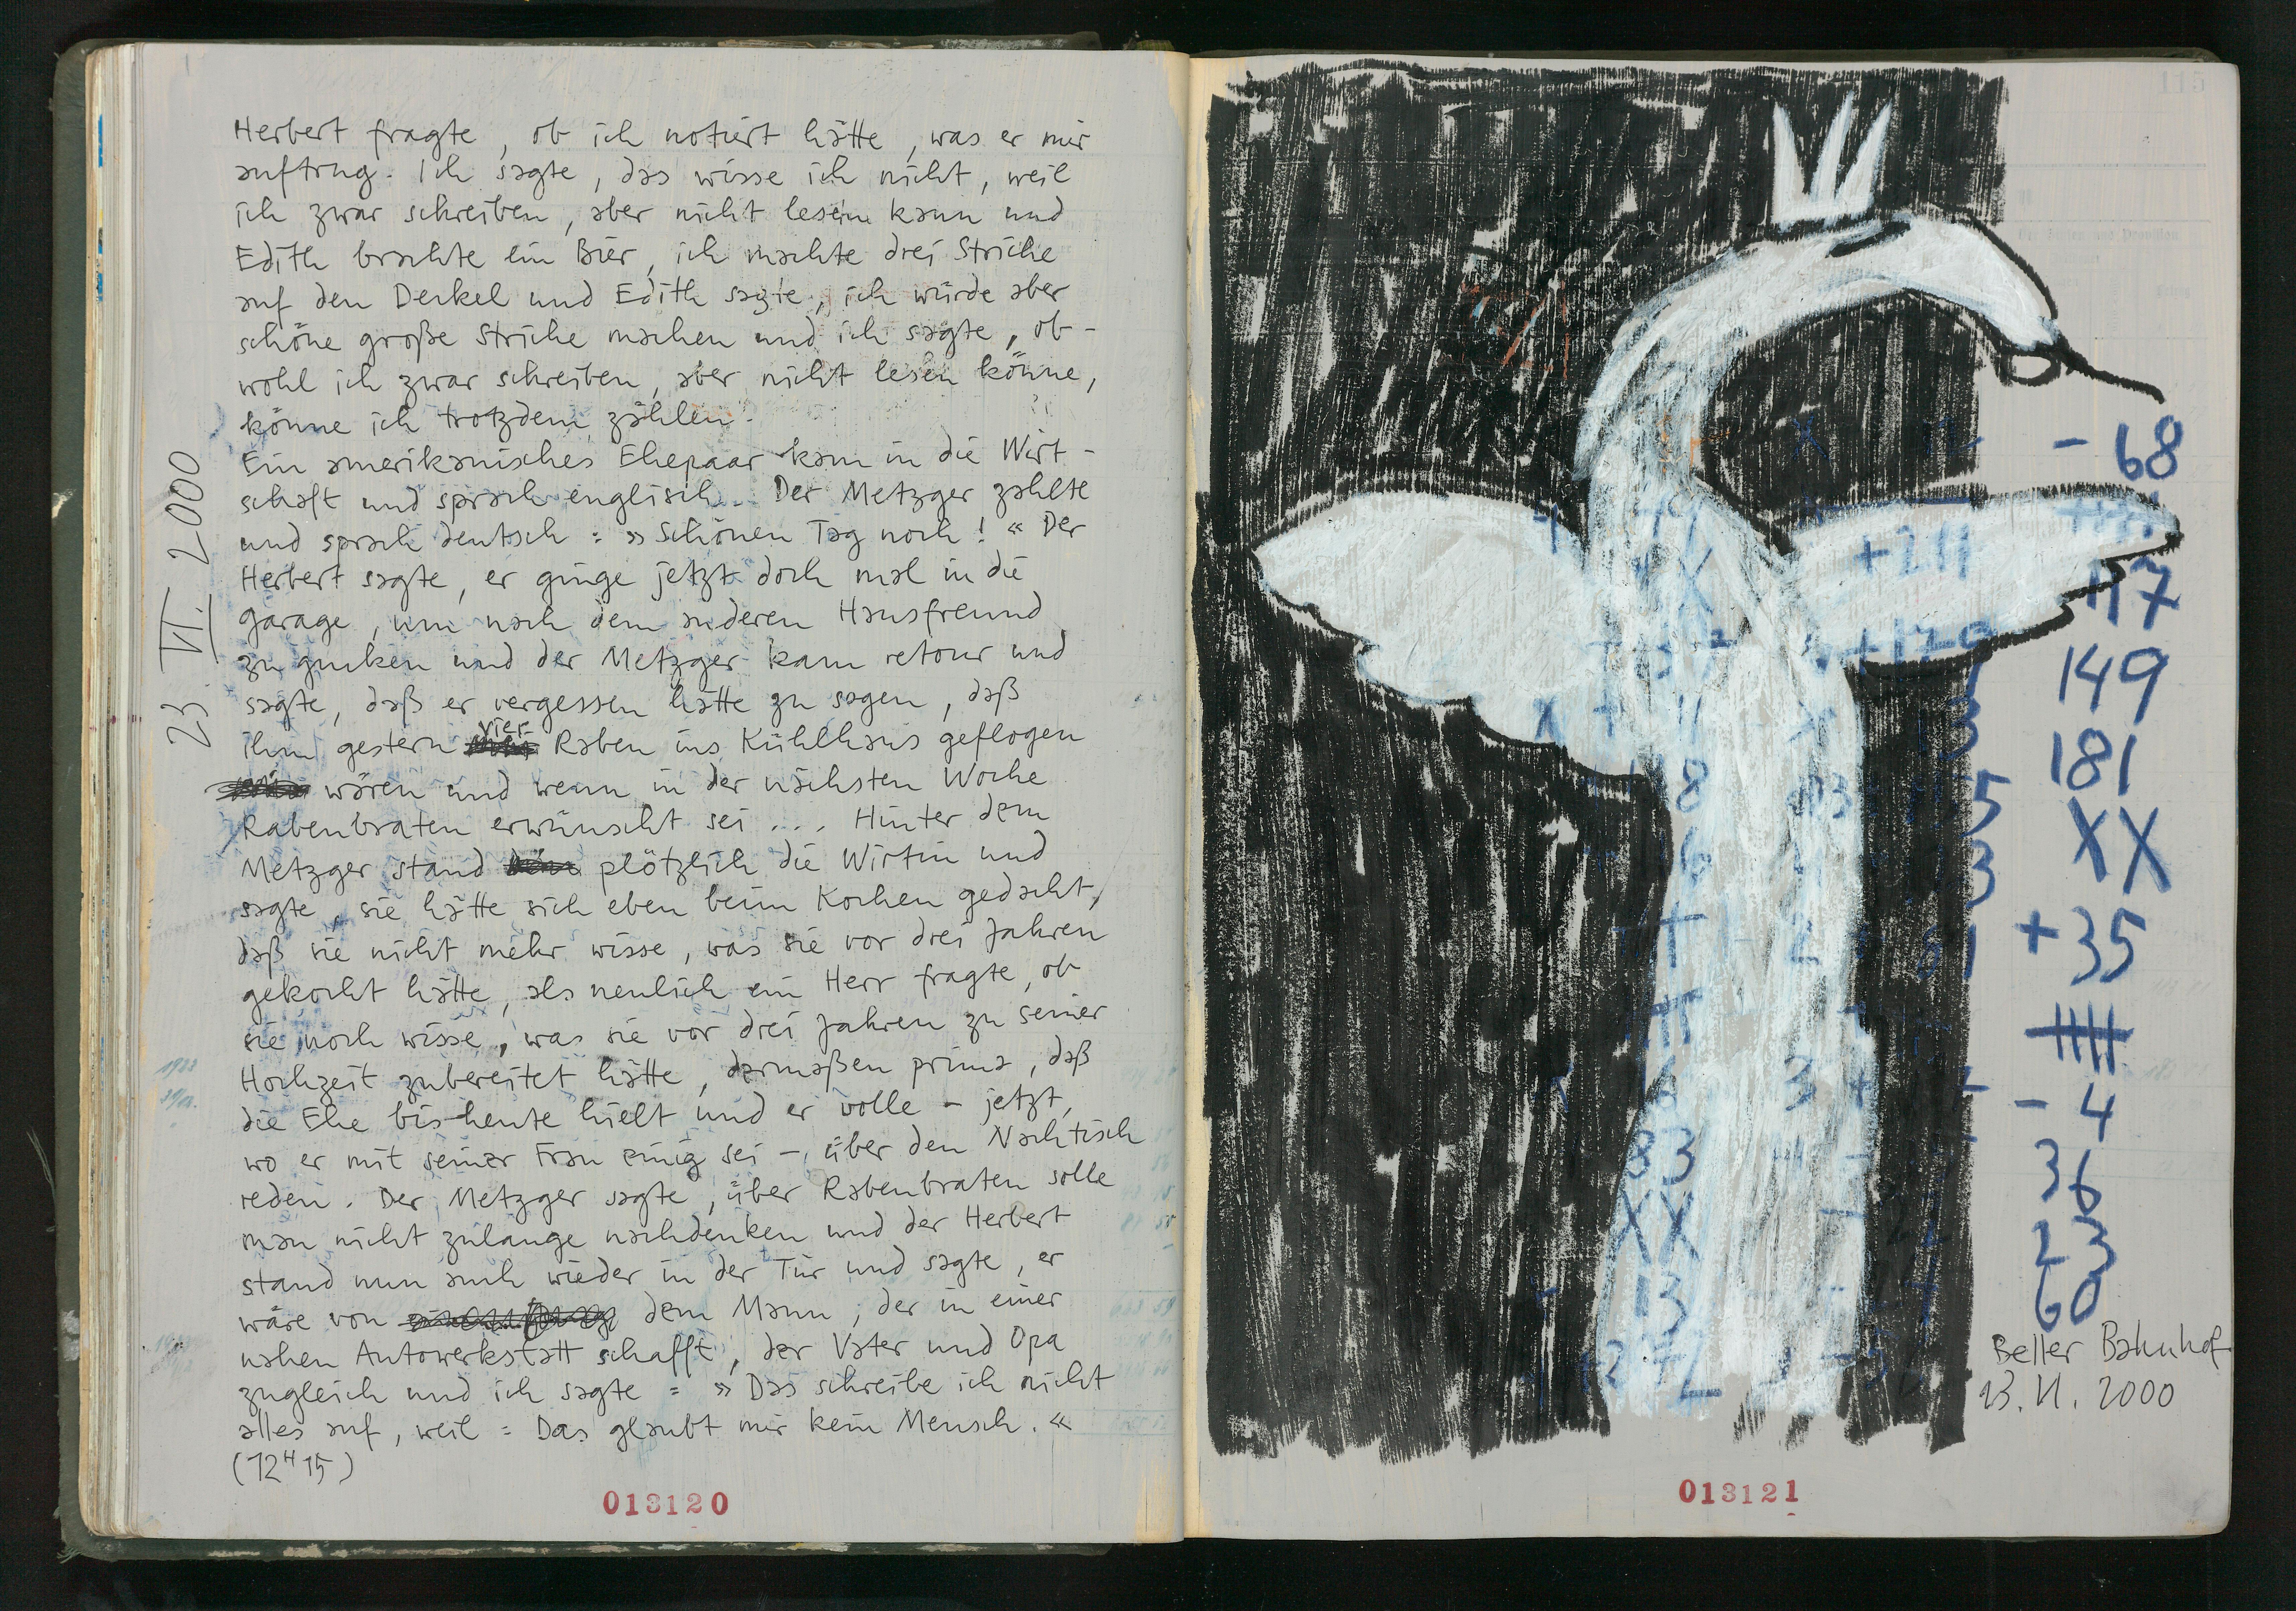 23. VI. 2000
Herbert fragte, ob ich notiert hätte, was er mir
auftrug. Ich sagte, das wisse ich nicht, weil
ich zwar schreiben, aber nicht lesen kann und
Edith brachte ein Bier, ich machte drei Striche
auf den Deckel und Edith sagte, ich würde aber
schöne große Striche machen und ich sagte, ob-
wohl ich zwar schreiben, aber nicht lesen könne,
könne ich trotzdem zählen.
Ein amerikanisches Ehepaar kam in die Wirt-
schaft und sprach englisch. Der Metzger zahlte
und sprach deutsch: »Schönen Tag noch!« Der
Herbert sagte, er ginge jetzt doch mal in die
Garage, um nach dem anderen Hausfreund
zu gucken und der Metzger kam retour und
sagte, daß er vergessen hätte zu sagen, daß
ihm gestern vier Raben ins Kühlhaus geflogen
wären und wenn in der nächsten Woche
Rabenbraten erwünscht sei ... Hinter dem
Metzger stand plötzlich die Wirtin und
sagte, sie hätte sich eben beim Kochen gedacht,
daß sie nicht mehr wisse, was sie vor drei Jahren
gekocht hätte, als neulich ein Herr fragte, ob
sie noch wisse, was sie vor drei Jahren zu seiner
Hochzeit zubereitet hätte, dermaßen prima, daß
die Ehe bis heute hielt und er wolle – jetzt,
wo er mit seiner Frau einig sei –, über den Nachtisch
reden. Der Metzger sagte, über Rabenbraten solle
man nicht zulange nachdenken und der Herbert
stand nun auch wieder in der Tür und sagte, er
wäre von dem Mann, der in einer
nahen Autowerkstatt schafft, der Vater und Opa
zugleich und ich sagte: »Das schreibe ich nicht
alles auf, weil: Das glaubt mir kein Mensch.«
(12ᴴ15)
013120
115
- 68
+211
117
+129
149
181
XX
+35
- 4
36
23
60
83
XX
13
Beller Bahnhof
23. VI. 2000
013121